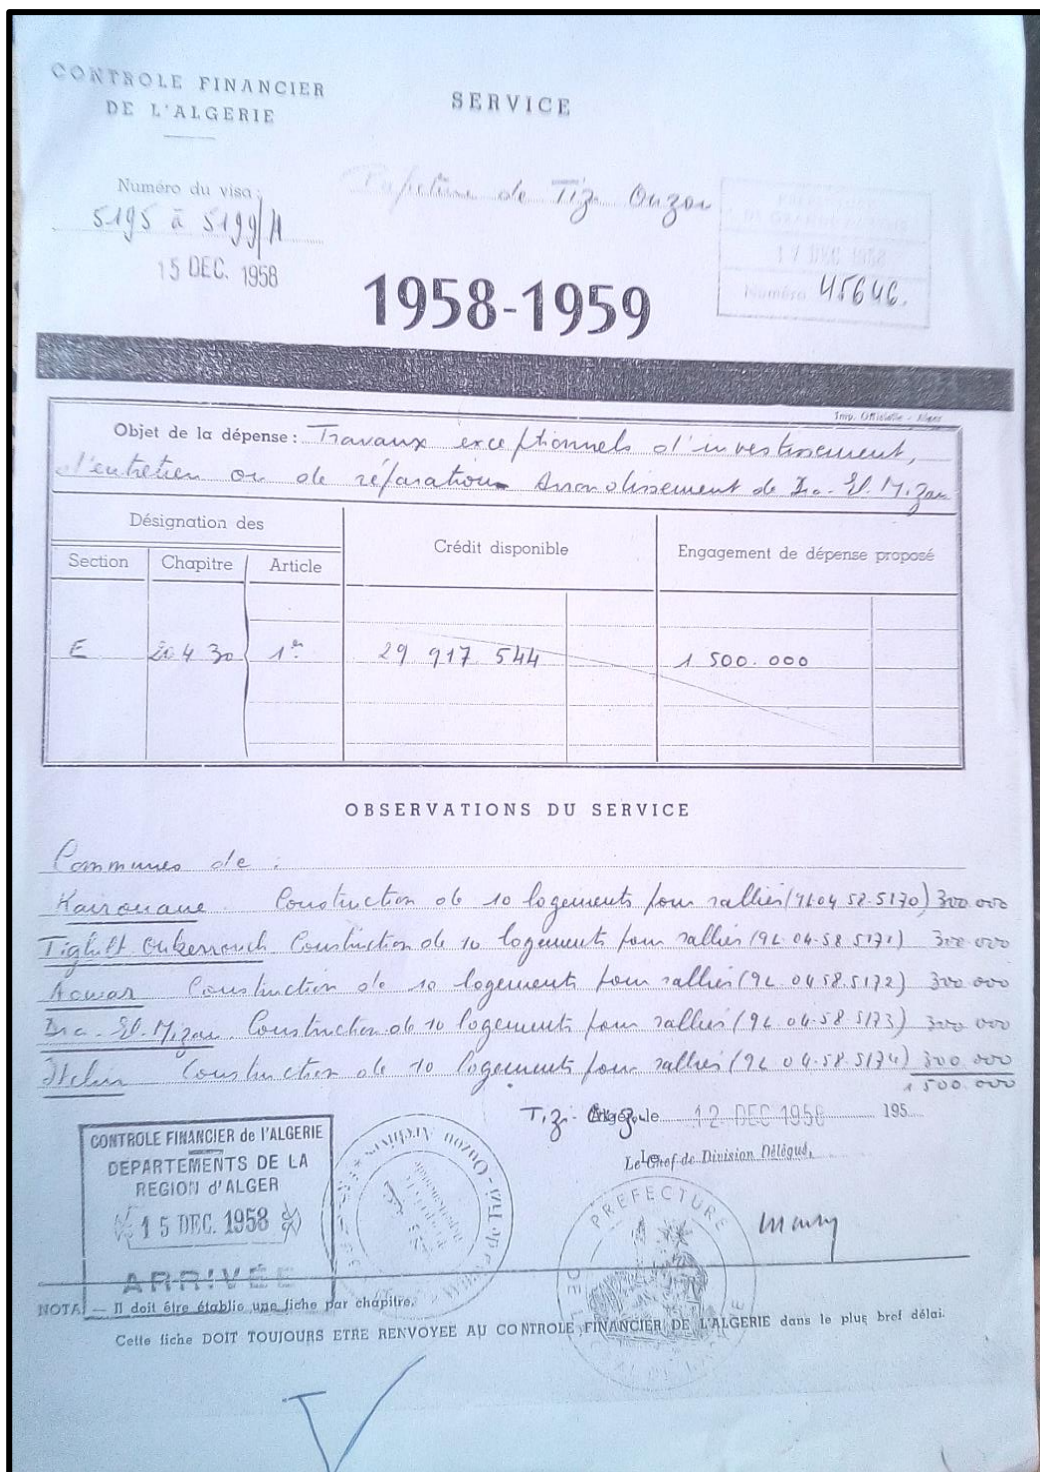 CONTROLE FINANCIER
DE L'ALGERIE
SERVICE
Numéro du visa :
5195 à 5199/A
15 DEC. 1958
de Tizi Ouzou
17 DEC 1958
Numéro 45646.
1958-1959
Imp. Officielle - Alger
Objet de la dépense : Travaux exceptionnels d'investissement,
d'entretien ou de réparation Arrondissement de Dra-El-Mizan
Désignation des
Crédit disponible
Engagement de dépense proposé
Section Chapitre Article
E 204 30 1er 29 917 544 1 500.000
OBSERVATIONS DU SERVICE
Communes de :
Kairouane Construction de 10 logements pour ralliés (9L 04 58.5170) 300.000
Tighilt Oukerrouch Construction de 10 logements pour ralliés (9L.04.58 5171) 300.000
Aomar Construction de 10 logements pour ralliés (9L.04.58.5172) 300.000
Dra-El-Mizan Construction de 10 logements pour ralliés (9L 04.58 5173) 300 000
Construction de 10 logements pour ralliés (9L 04.58.5174) 300 000
1 500.000
Tizi- le 12 DEC 1958 195
Le Chef de Division Délégué,
CONTROLE FINANCIER de l'ALGERIE
DEPARTEMENTS DE LA
REGION d'ALGER
15 DEC. 1958
ARRIVÉE
PREFECTURE
NOTA — Il doit être établie une fiche par chapitre.
Cette fiche DOIT TOUJOURS ETRE RENVOYEE AU CONTROLE FINANCIER DE L'ALGERIE dans le plus bref délai.